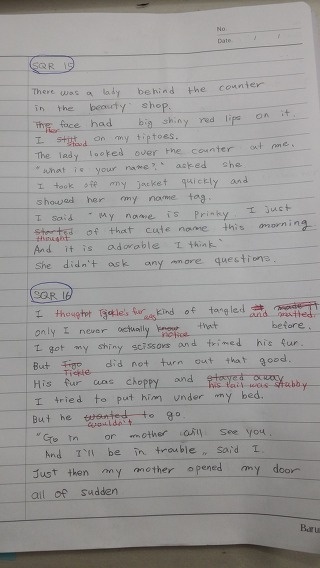 No.
Date. / /
SQR 15
There was a lady behind the counter
in the beauty shop.
The Her face had big shiny red lips on it.
I still stood on my tiptoes.
The lady looked over the counter at me.
"What is your name?," asked she
I took off my jacket quickly and
showed her my name tag.
I said "My name is Prinky I just
started thought of that cute name this morning
And it is adorable I think"
She didn't ask any more questions.
SQR 16
I thought Tickle's fur was kind of tangled and matted.
only I never actually know notice that before.
I got my shiny scissors and trimed his fur.
But Tigo Tickle did not turn out that good.
His fur was choppy and stayed away his tail was stabby
I tried to put him under my bed.
But he wanted wouldn't to go.
"Go in or mother will see you.
And I'll be in trouble„ said I.
Just then my mother opened my door
all of sudden